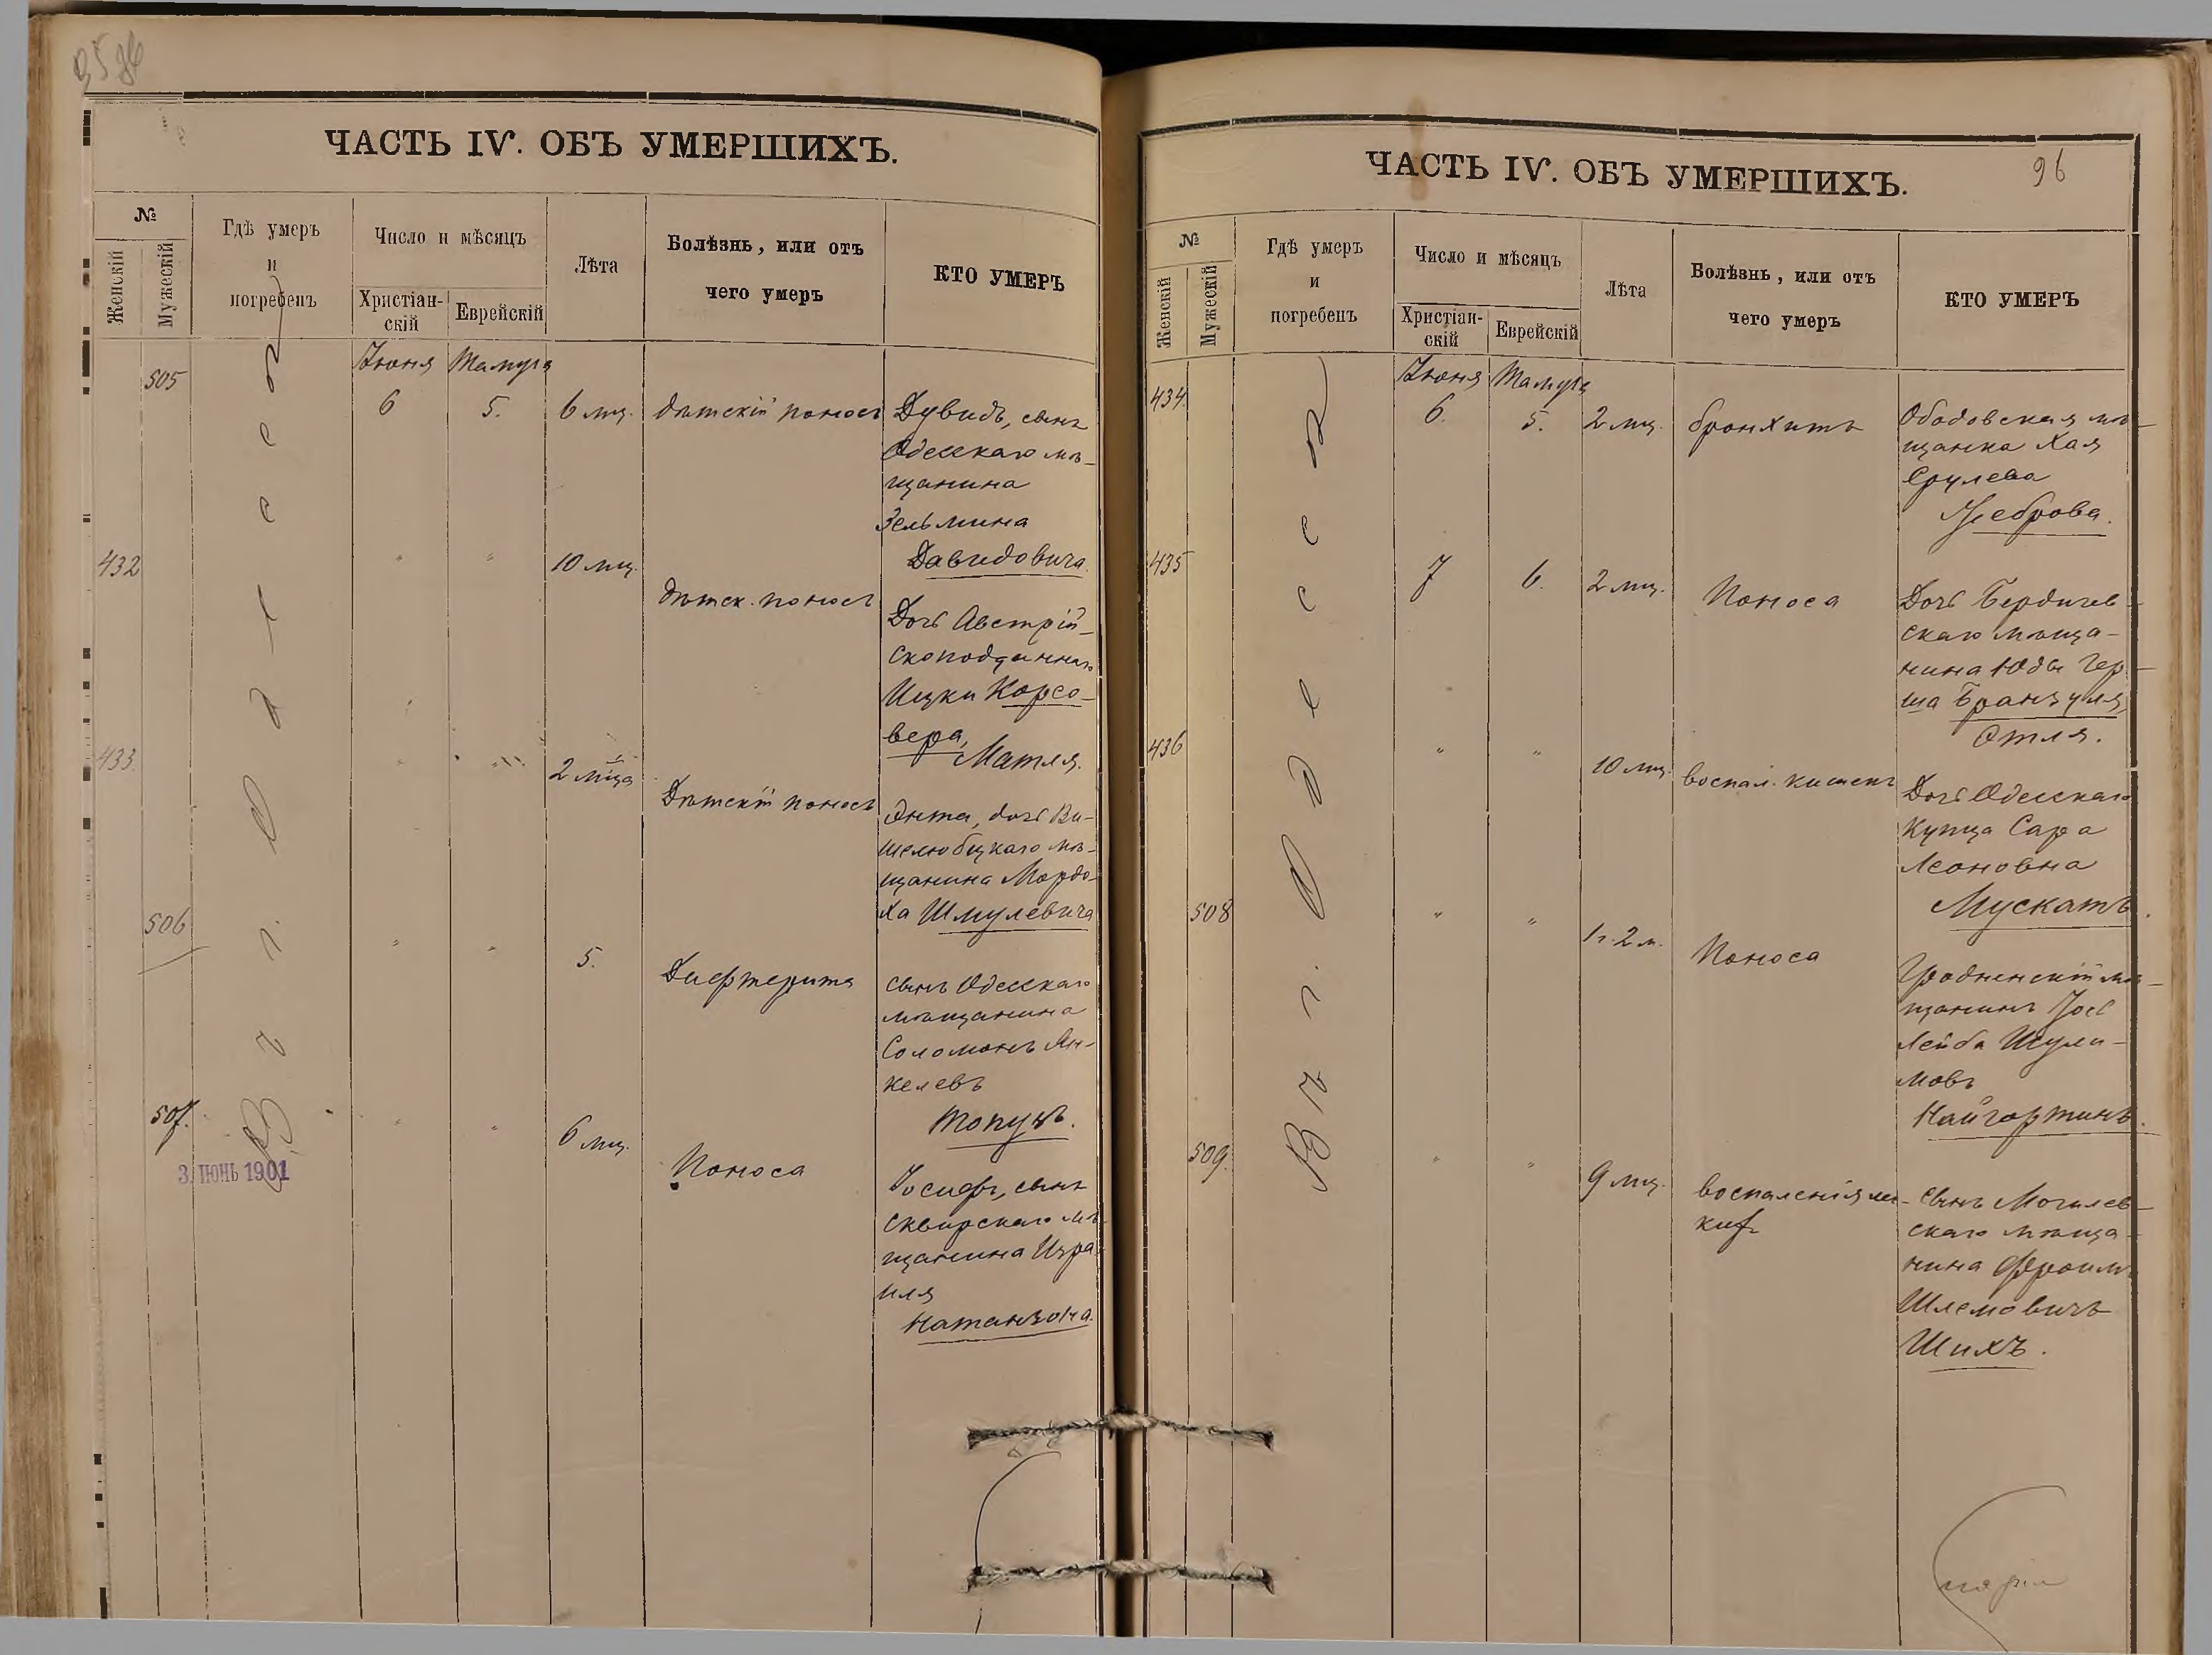 ЧАСТЬ IV. ОБЪ УМЕРШИХЪ.
№
Женскій
Мужескій
Гдѣ умеръ
и
погребенъ
Число и мѣсяцъ
Христіан-
скій
Еврейскій
Лѣта
Болѣзнь, или отъ
чего умеръ
КТО УМЕРЪ
В г. Одессѣ
Іюня Тамуза
505
6 5. 6 мц. дѣтскій поносъ Дувидъ, сынъ
Одесскаго мѣ-
щанина
Зельмина
Давидовича.
432 " " 10 мц. дѣтск. поносъ
Дочь Австрій-
скоподданнаго
Ицки Корсо-
вера,
Матля.
433 " " 2 мца Дѣтскій поносъ
Энта, дочь Ви-
щанина Мордо-
ха Шмулевича
506 " " 5. Дифтерита
сынъ Одесскаго
мѣщанина
Соломонъ Ян-
келевъ
Топузъ.
507. " " 6 мц. Поноса
3 ІЮНЬ 1901
Іосифъ, сынъ
Сквирскаго мѣ-
щанина Изра-
иля
Натанзона.
ЧАСТЬ IV. ОБЪ УМЕРШИХЪ.
96
№
Женскій
Мужескій
Гдѣ умеръ
и
погребенъ
Число и мѣсяцъ
Христіан-
скій
Еврейскій
Лѣта
Болѣзнь, или отъ
чего умеръ
КТО УМЕРЪ
В г. Одессѣ
Іюня Тамуза
434. 6. 5. 2 мц. бронхитъ
Ободовская мѣ-
щанка Хая
Срулева
435 7 6. 2 мц. Поноса
Дочь Бердичев-
скаго мѣща-
нина Юды Гер-
ша Бранзуля,
Этля.
436 " " 10 мц. воспал. кишекъ
Дочь Одесскаго
купца Сара
Леоновна
Мускатъ.
508 " " 1 г. 2 м. Поноса
Гродненскій мѣ-
щанинъ Іось
Лейба Шули-
мовъ
Найгортинъ.
509. " " 9 мц. воспаленія лег-
кихъ
сынъ Могилев-
скаго мѣща-
нина Фроимъ
Шлемовичъ
Шихъ.